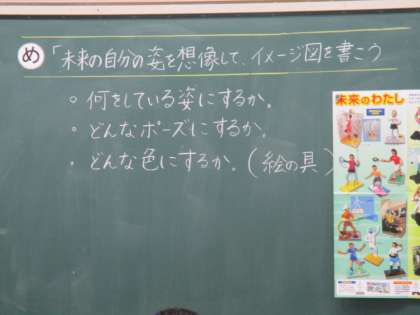 め 「未来の自分の姿を想像して、イメージ図を書こう
○ 何をしている姿にするか。
○ どんなポーズにするか。
○ どんな色にするか。(絵の具)
未来のわたし